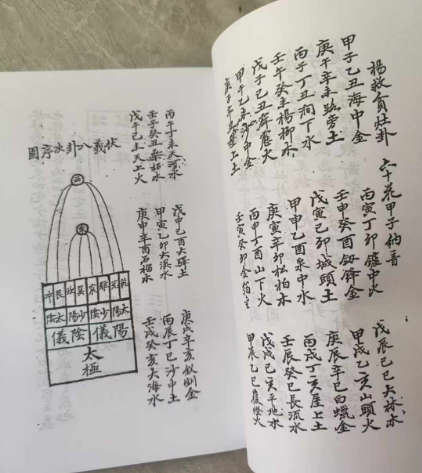 楊救貧壯卦 六十花甲子納音
甲子乙丑海中金 丙寅丁卯爐中火 戊辰己巳大林木
庚午辛未路旁土 壬申癸酉釰鋒金 甲戌乙亥山頭火
丙子丁丑澗下水 戊寅己卯城頭土 庚辰辛巳白蠟金
壬午癸未楊柳木 甲申乙酉泉中水 丙戌丁亥屋上土
戊子己丑霹靂火 庚寅辛卯松柏木 壬辰癸巳長流水
甲午乙未沙中金 丙申丁酉山下火 戊戌己亥平地木
庚子辛丑壁上土 壬寅癸卯金箔金 甲辰乙巳覆燈火
丙午丁未天河水 戊申己酉大驛土 庚戌辛亥釵釧金
壬子癸丑桑柘木 甲寅乙卯大溪水 丙辰丁巳沙中土
戊午己未天上火 庚申辛酉石榴木 壬戌癸亥大海水
伏羲八卦次序圖
乾兌離震巽坎艮坤
太陽 少陰 少陽 太陰
陽儀 陰儀
太極